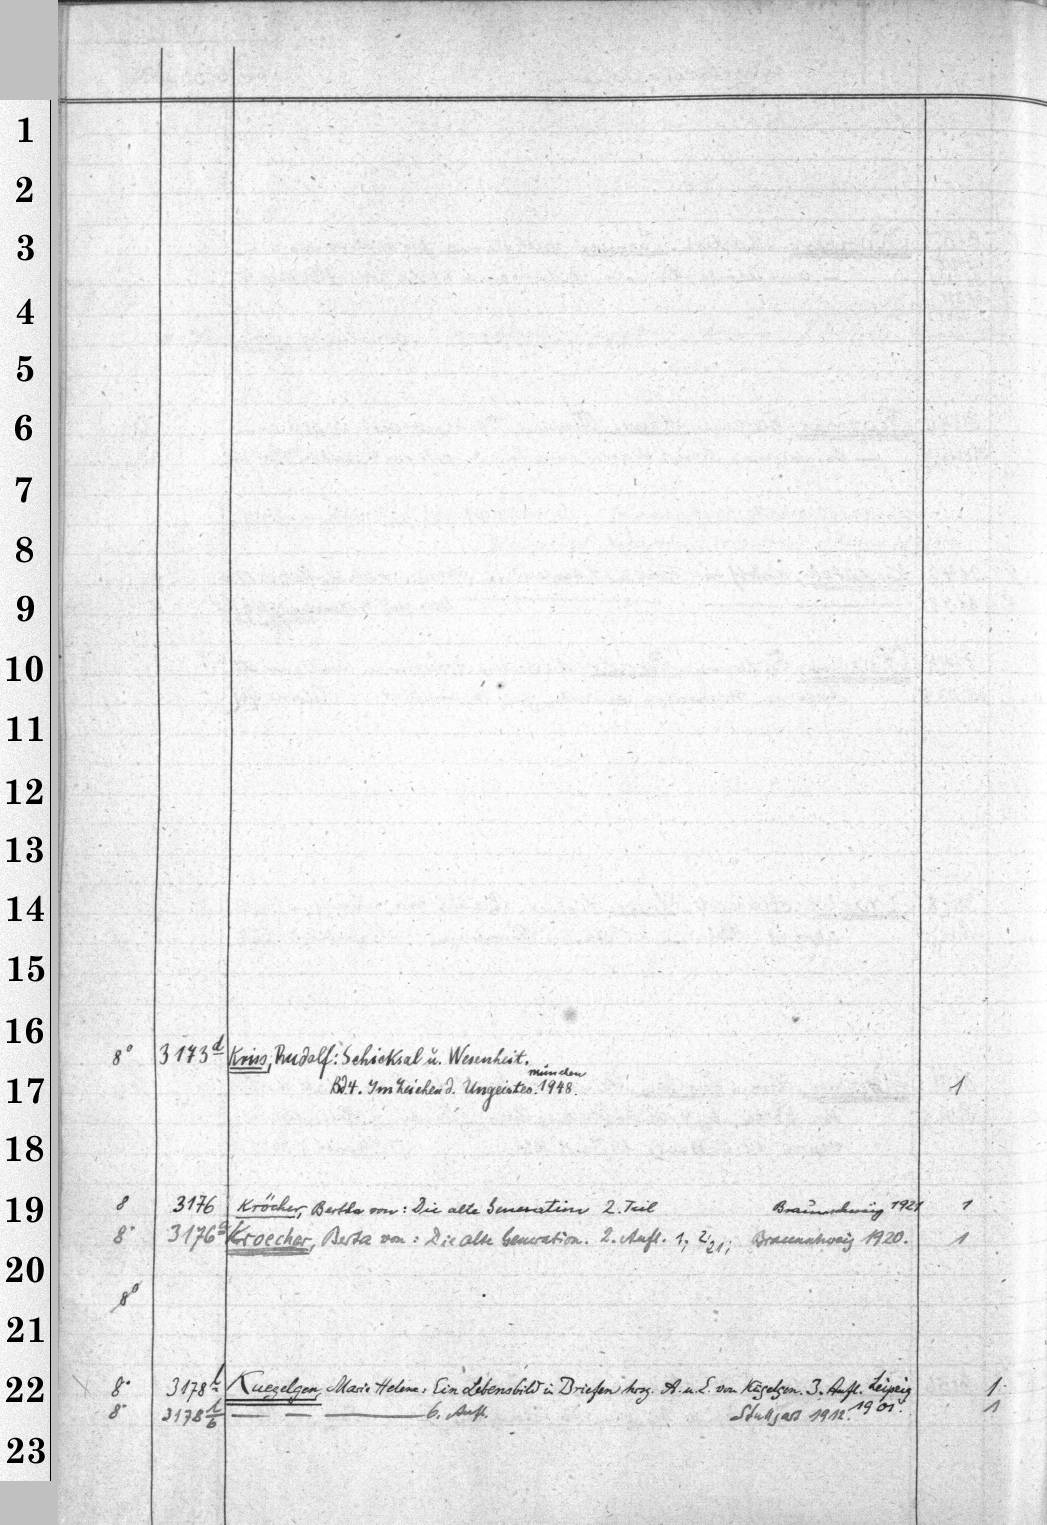 1
2
3
4
5
6
7
8
9
10
11
12
13
14
15
16
8° 3173d Kriss, Rudolf: Schicksal u. Wesenheit.
München
17 Bd 4. Im Zeichen d. Ungeistes. 1948. 1
18
19 8 3176 Kröcher, Bertha von: Die alte Generation 2. Teil Braunschweig 1921 1
8° 3176a Kroecher, Berta von: Die alte Generation. 2. Aufl. 1, 2, 21; Braunschweig 1920. 1
20
8°
21
22 8° 3178b Kuegelgen, Marie Helene: Ein Lebensbild in Briefen hrsg. A. u. E. von Kügelgen. 3. Aufl. Leipzig 1901. 1
8° 3178 — — — 6. Aufl. Stuttgart 1912. 1
23